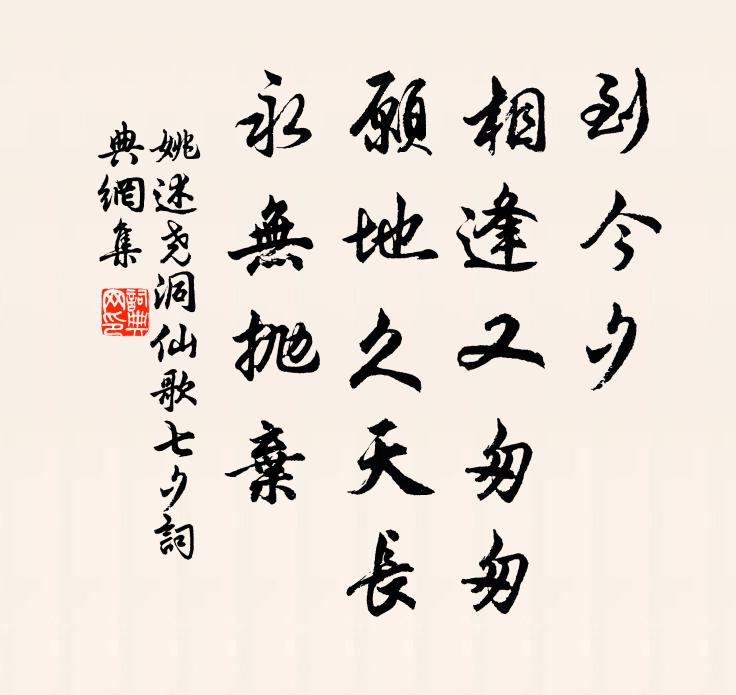 到今夕
相逢又匆匆
願地久天長
永無拋棄
姚述堯洞仙歌七夕詞
典網集
詞典
网印